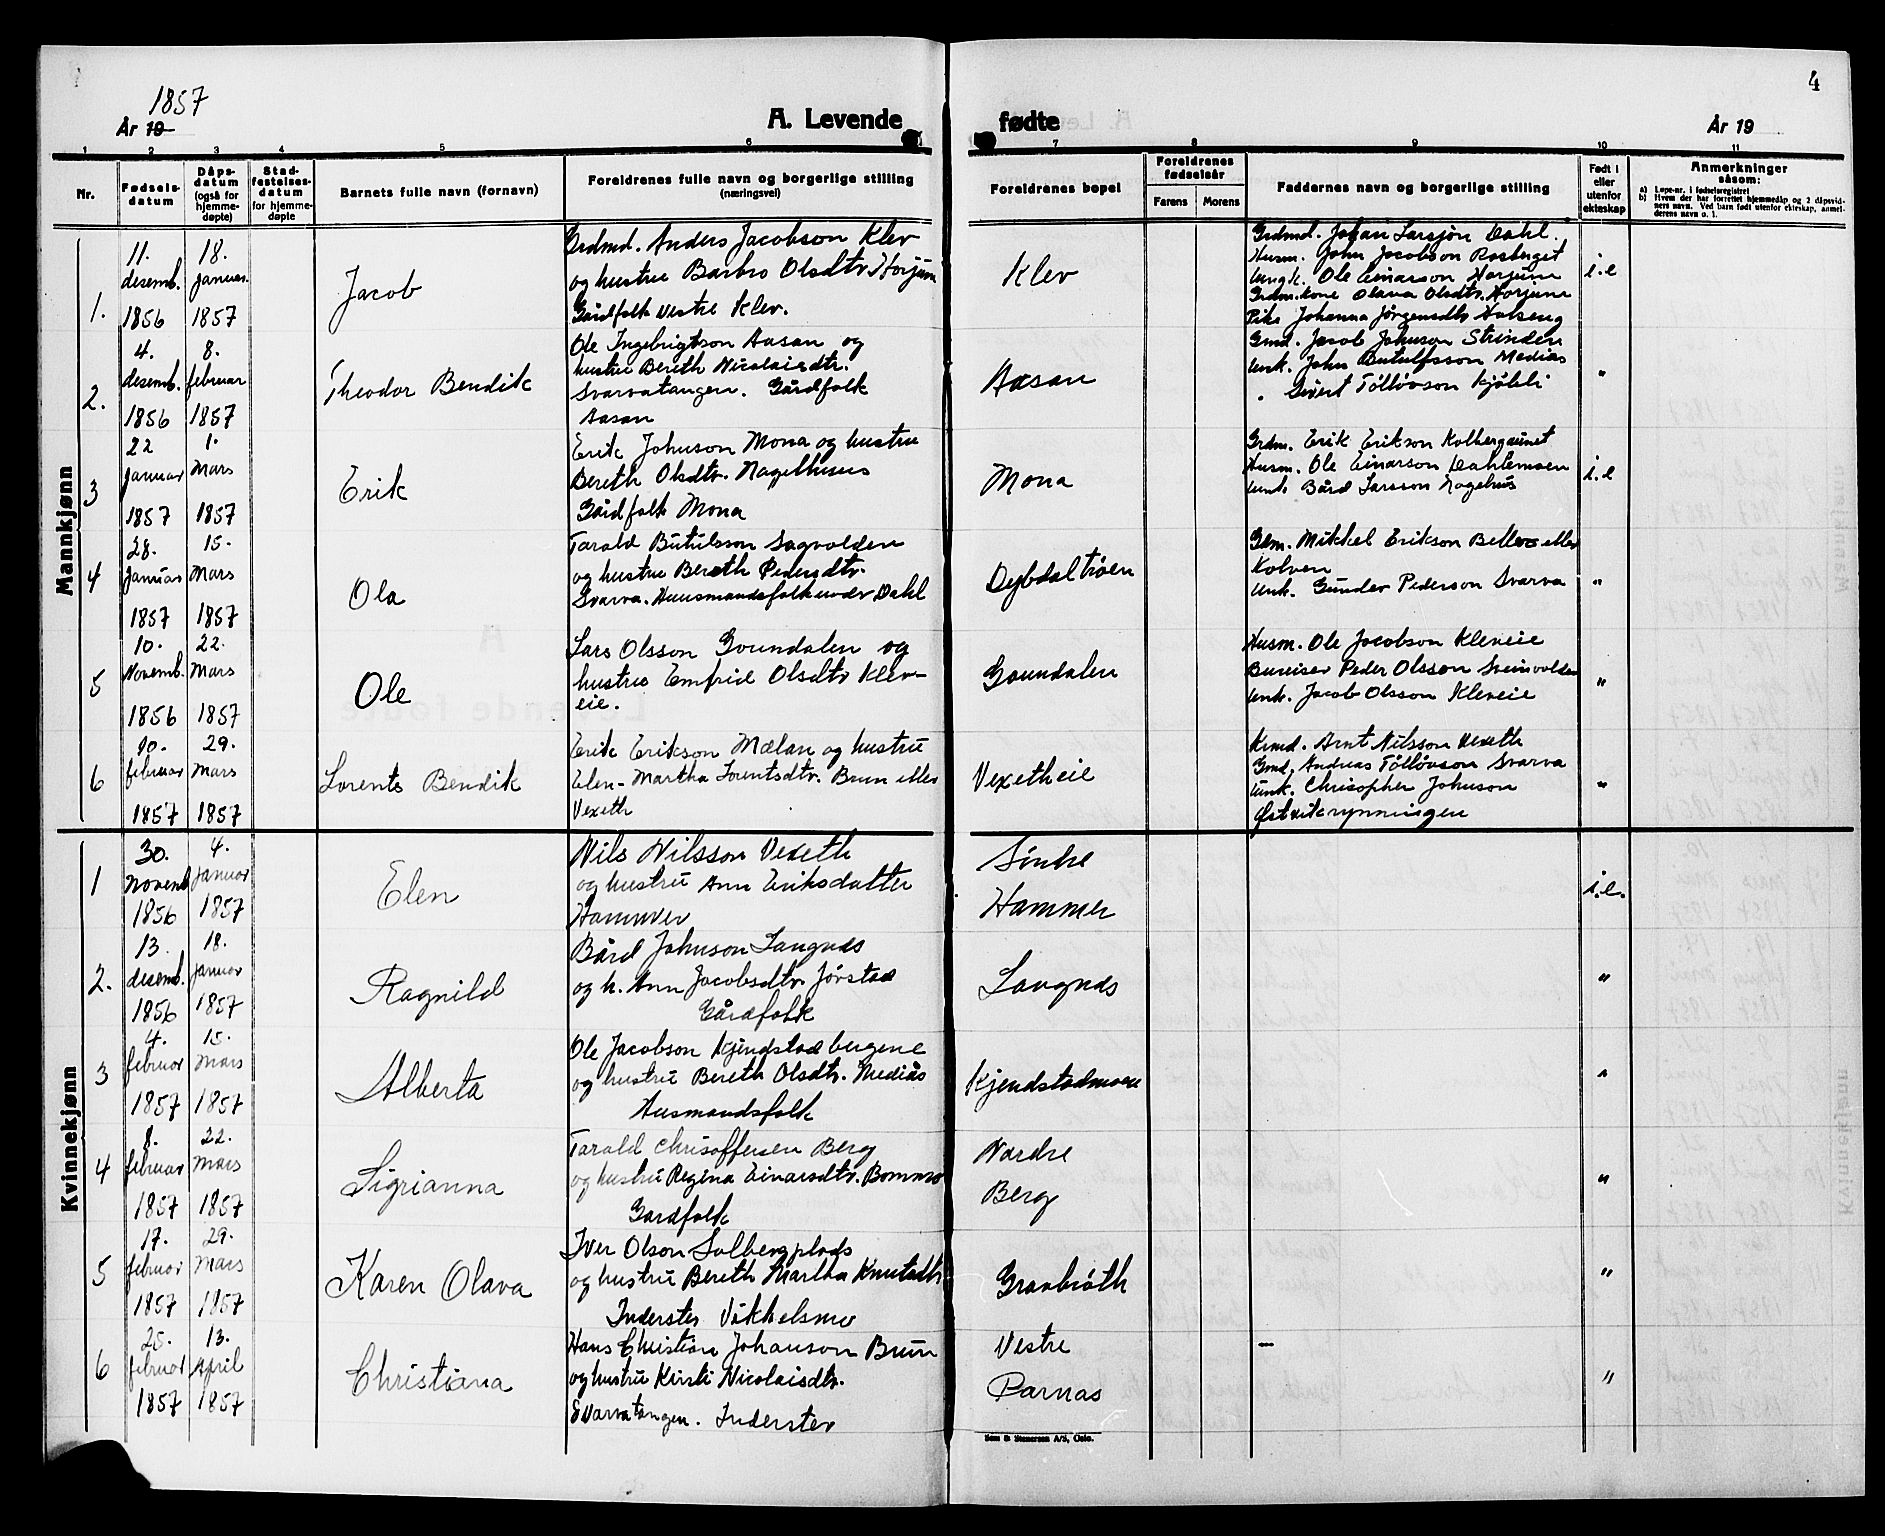 1857
År 19
A. Levende
fødte
År 19
4
1 2 3 4 5 6 7 8 9 10 11
Nr.
Fødsels-
datum
Dåps-
datum
(også for
hjemme-
døpte)
Stad-
festelses-
datum
for hjemme-
døpte
Barnets fulle navn (fornavn)
Foreldrenes fulle navn og borgerlige stilling
(næringsvei)
Foreldrenes bopel
Foreldrenes
fødselsår
Farens
Morens
Faddernes navn og borgerlige stilling
Født i
eller
utenfor
ekteskap
Anmerkninger
såsom:
a) Løpe-nr. i fødselsregistret
b) Hvem der har forrettet hjemmedåp og 2 dåpsvid-
ners navn. Ved barn født utenfor ekteskap, anmel-
derens navn o. l.
Mannkjønn
1.
11.
desemb.
1856
18.
januar
1857
Jacob
Grdmd. Anders Jacobson Klev
og hustru Barbro Olsdtr. Horjem
Gårdfolk vestre Klev.
Klev
Grdmd. Johan Larsson Dahl.
Husm. John Jacobson Rosberget
Ungk. Ole Einarson Horjem
Grdm. kone Olava Olsdtr. Horjem
Pike Johanna Jörgensdtr. Holseng
i.e
2.
4.
desemb.
1856
8.
februar
1857
Theodor Bendik
Ole Ingebrigtson Aasan og
hustru Bereth Nicolaisdtr.
Svarvatangen. Gårdfolk
Aasan
Aasan
Gmd. Jacob Johnson Strinden
Unk. John Butulfsson Mediås
" Sivert Töllövson Kjölli
"
3
22
januar
1857
1.
Mars
1857
Erik
Erik Johnson Mona og hustru
Bereth Olsdtr. Nagelhus
Gårdfolk Mona
Mona
Grdm. Erik Erikson Kolbergaunet
Husm. Ole Einarson Dahlemoen
Unk. Bård Larsson Nagelhus
i.e
4
28.
januar
1857
15.
Mars
1857
Ola
Tarald Butulsson Sagvolden
og hustru Bereth Pedersdtr.
Svarva. Huusmandsfolk under Dahl
Dybdaltrøen
Gdm. Mikkel Erikson Belbo eller
Kolven
Unk. Gunder Pederson Svarva
"
5
10.
Novemb.
1856
22.
Mars
1857
Ole
Lars Olsson Grundalen og
hustru Emfrid Olsdtr Klev-
eie.
Grundalen
Husm. Ole Jacobson Kleveie
Bureiser Peder Olsson Steinvolden
Unk. Jacob Olsson Kleveie
"
6
10.
februar
1857
29.
Mars
1857
Lorents Bendik
Erik Erikson Mælan og hustru
Elen-Martha Lorentsdtr. Brun eller
Vexeth
Vexetheie
Krmd. Arnt Nilsson Vexeth
Gmd. Andreas Töllövson Svarva
Unk. Chrisopher Johnson
Østvikrynningen
"
Kvinnekjønn
1
30.
Novemb
1856
4.
januar
1857
Elen
Nils Nilsson Vexeth
og hustru Ann Eriksdatter
Hammer
Hammer
i.e.
2.
13.
desemb.
1856
18.
januar
1857
Ragnild
Bård Johnson Langnes
og h. Ann Jacobsdtr. Jörstad
Gårdfolk
Langnes
"
3
4.
februar
1857
15.
Mars
1857
Alberta
Ole Jacobson Kjendstadbergene
og hustru Bereth Olsdtr. Mediås
Husmandsfolk
Kjendstadmoen
"
4
8.
februar
1857
22.
Mars
1857
Sigrianna
Tarald Chrisoffersen Berg
og hustru Regina Einarsdtr. Bommo
Gardfolk
Nordre
Berg
"
5
17.
februar
1857
29.
Mars
1857
Karen Olava
Iver Olson Solbergplads
og hustru Bereth Martha Knutsdtr
Inderster Vikhelsmo
Granbröth
"
6
25.
februar
1857
13.
April
1857
Christiana
Hans Christian Johanson Brun
og hustru Kirsti Nicolaisdtr.
Svarvatangen. Inderster
Vestre
Parnas
—
"
Sem & Stenersen A/S, Oslo.